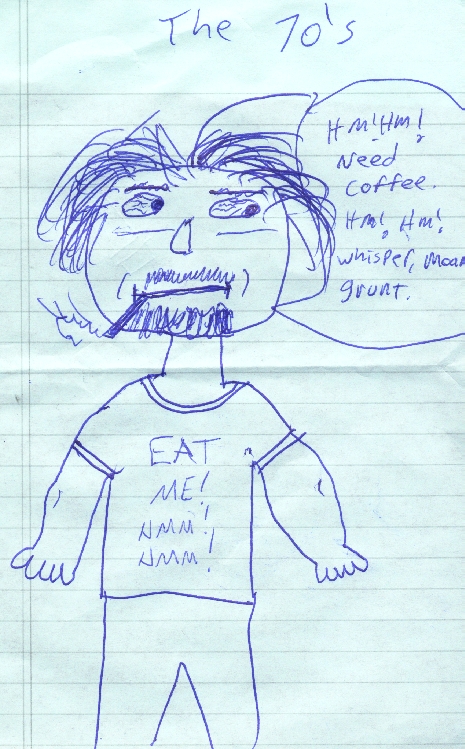 The 70's
Hm! Hm!
Need
Coffee.
Hm! Hm!
whisper, moan
grunt.
EAT
ME!
HMM!
HMM!